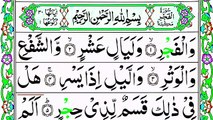 بِسْمِ اللّٰهِ الرَّحْمٰنِ الرَّحِيْمِ
وَالْفَجْرِۙ وَلَيَالٍ عَشْرٍۙ وَّالشَّفْعِ
وَالْوَتْرِۙ وَالَّيْلِ اِذَا يَسْرِۚ هَلْ
فِيْ ذٰلِكَ قَسَمٌ لِّذِيْ حِجْرٍؕ اَلَمْ